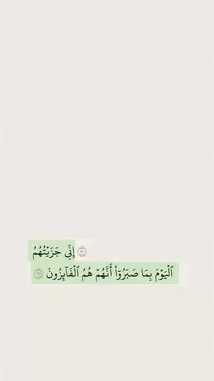 إِنِّي جَزَيْتُهُمُ
ٱلْيَوْمَ بِمَا صَبَرُوٓا۟ أَنَّهُمْ هُمُ ٱلْفَآئِزُونَ